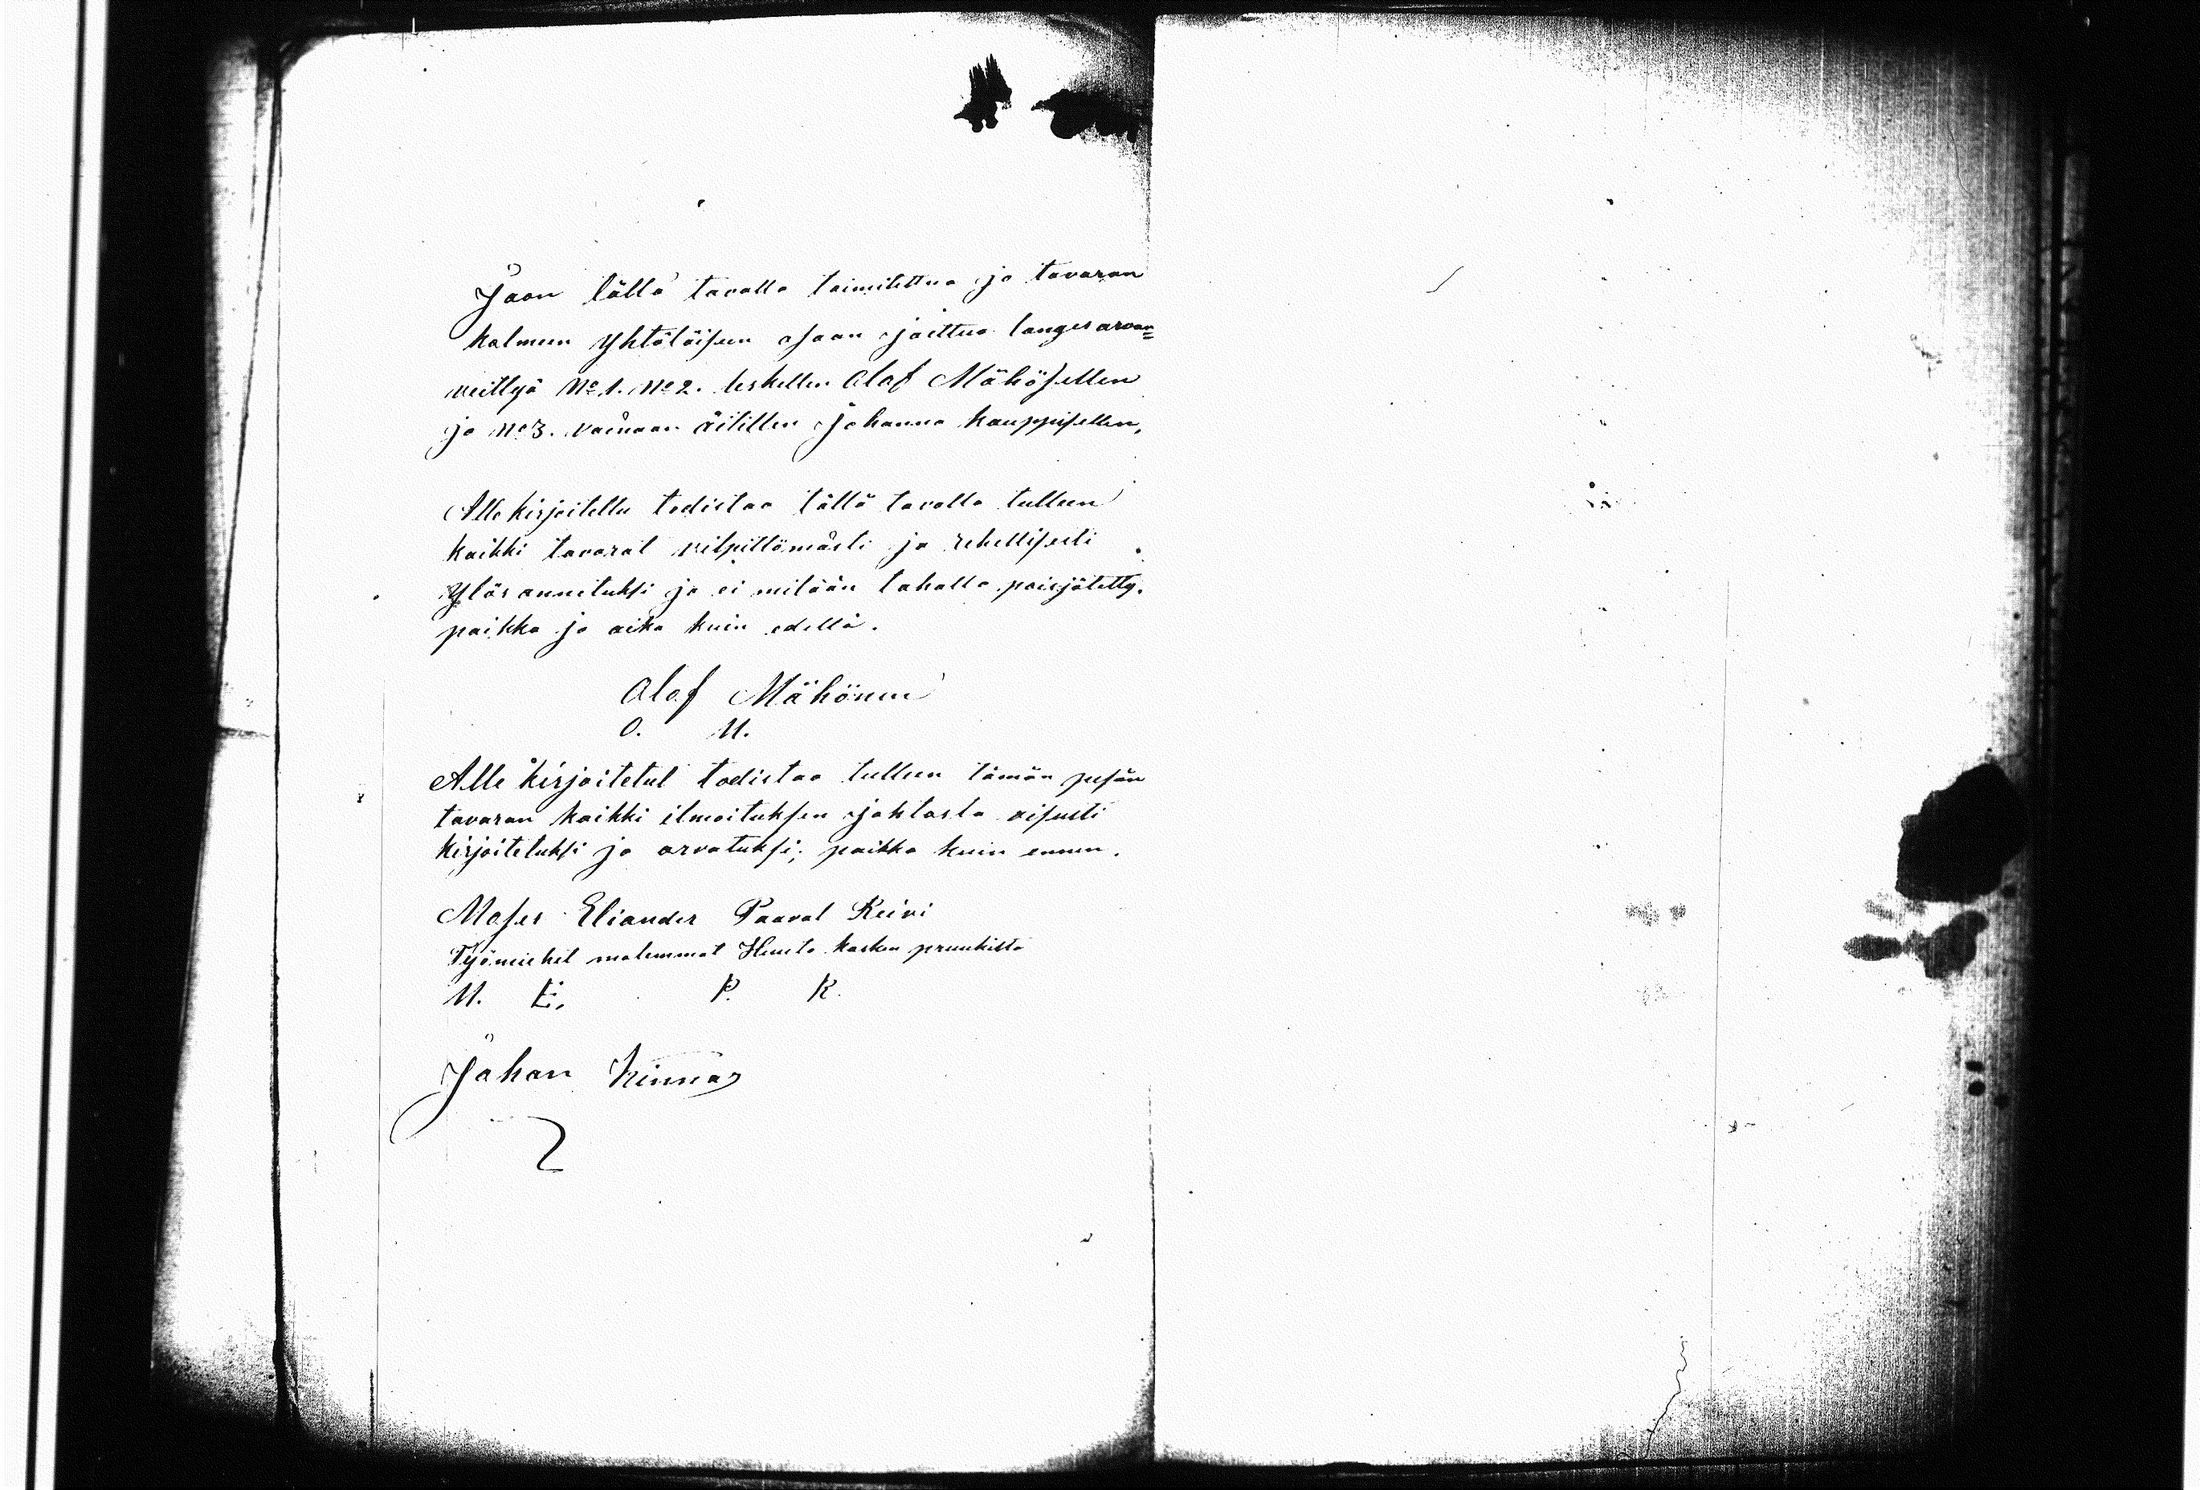 Jaon tällä tavalla toimitettua ja tavaran
kolmeen yhtöläiseen osaan jaettua langes arvan=
veittyä No 1. No 2. leskellen Olof Mähösellen
ja No 3. vainaan äitillen Johanna Kauppisellen,
Alle kirjoitettu todistaa tällä tavalla tulleen
kaikki tavarat vilpittömästi ja rehellisesti
ylös annetuksi ja ei milään tahalla poisjätetty.
paikka ja aika kuin edellä.
Olof Mähönen
O. M.
Alle kirjoitetut todistaa tulleen tämän pesän
tavaran kaikki ilmoituksen johtasta oikeesti
kirjoitetuksi ja arvatuksi; paikka kuin ennen.
Moses Eliander Paaval Keivi
Työmiehet molemmat Huuta kosken pruukista
M. E. P. K.
Johan Kinnar